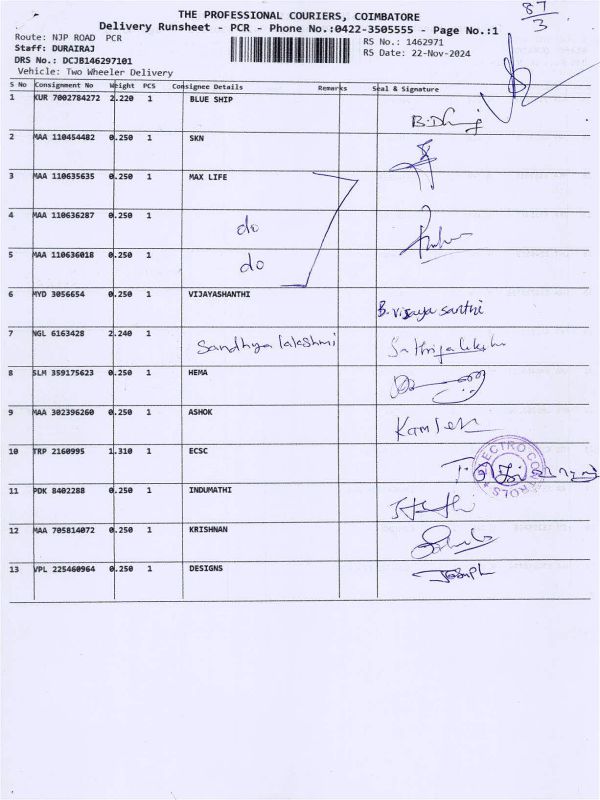 THE PROFESSIONAL COURIERS, COIMBATORE
Delivery Runsheet - PCR - Phone No.:0422-3505555 - Page No.:1
87
3
Route: NJP ROAD PCR
RS No.: 1462971
Staff: DURAIRAJ
RS Date: 22-Nov-2024
DRS No.: DCJB146297101
Vehicle: Two Wheeler Delivery
S No Consignment No Weight PCS Consignee Details Remarks Seal & Signature
1 KUR 7002784272 2.220 1 BLUE SHIP
2 MAA 110454482 0.250 1 SKN
3 MAA 110635635 0.250 1 MAX LIFE
4 MAA 110636287 0.250 1 do
5 MAA 110636018 0.250 1 do
6 MYD 3056654 0.250 1 VIJAYASHANTHI B. vijaya santhi
7 NGL 6163428 2.240 1 Sandhya lakshmi
8 SLM 359175623 0.250 1 HEMA
9 MAA 302396260 0.250 1 ASHOK
10 TRP 2160995 1.310 1 ECSC
11 PDK 8402288 0.250 1 INDUMATHI
12 MAA 705814072 0.250 1 KRISHNAN
13 VPL 225460964 0.250 1 DESIGNS Joseph